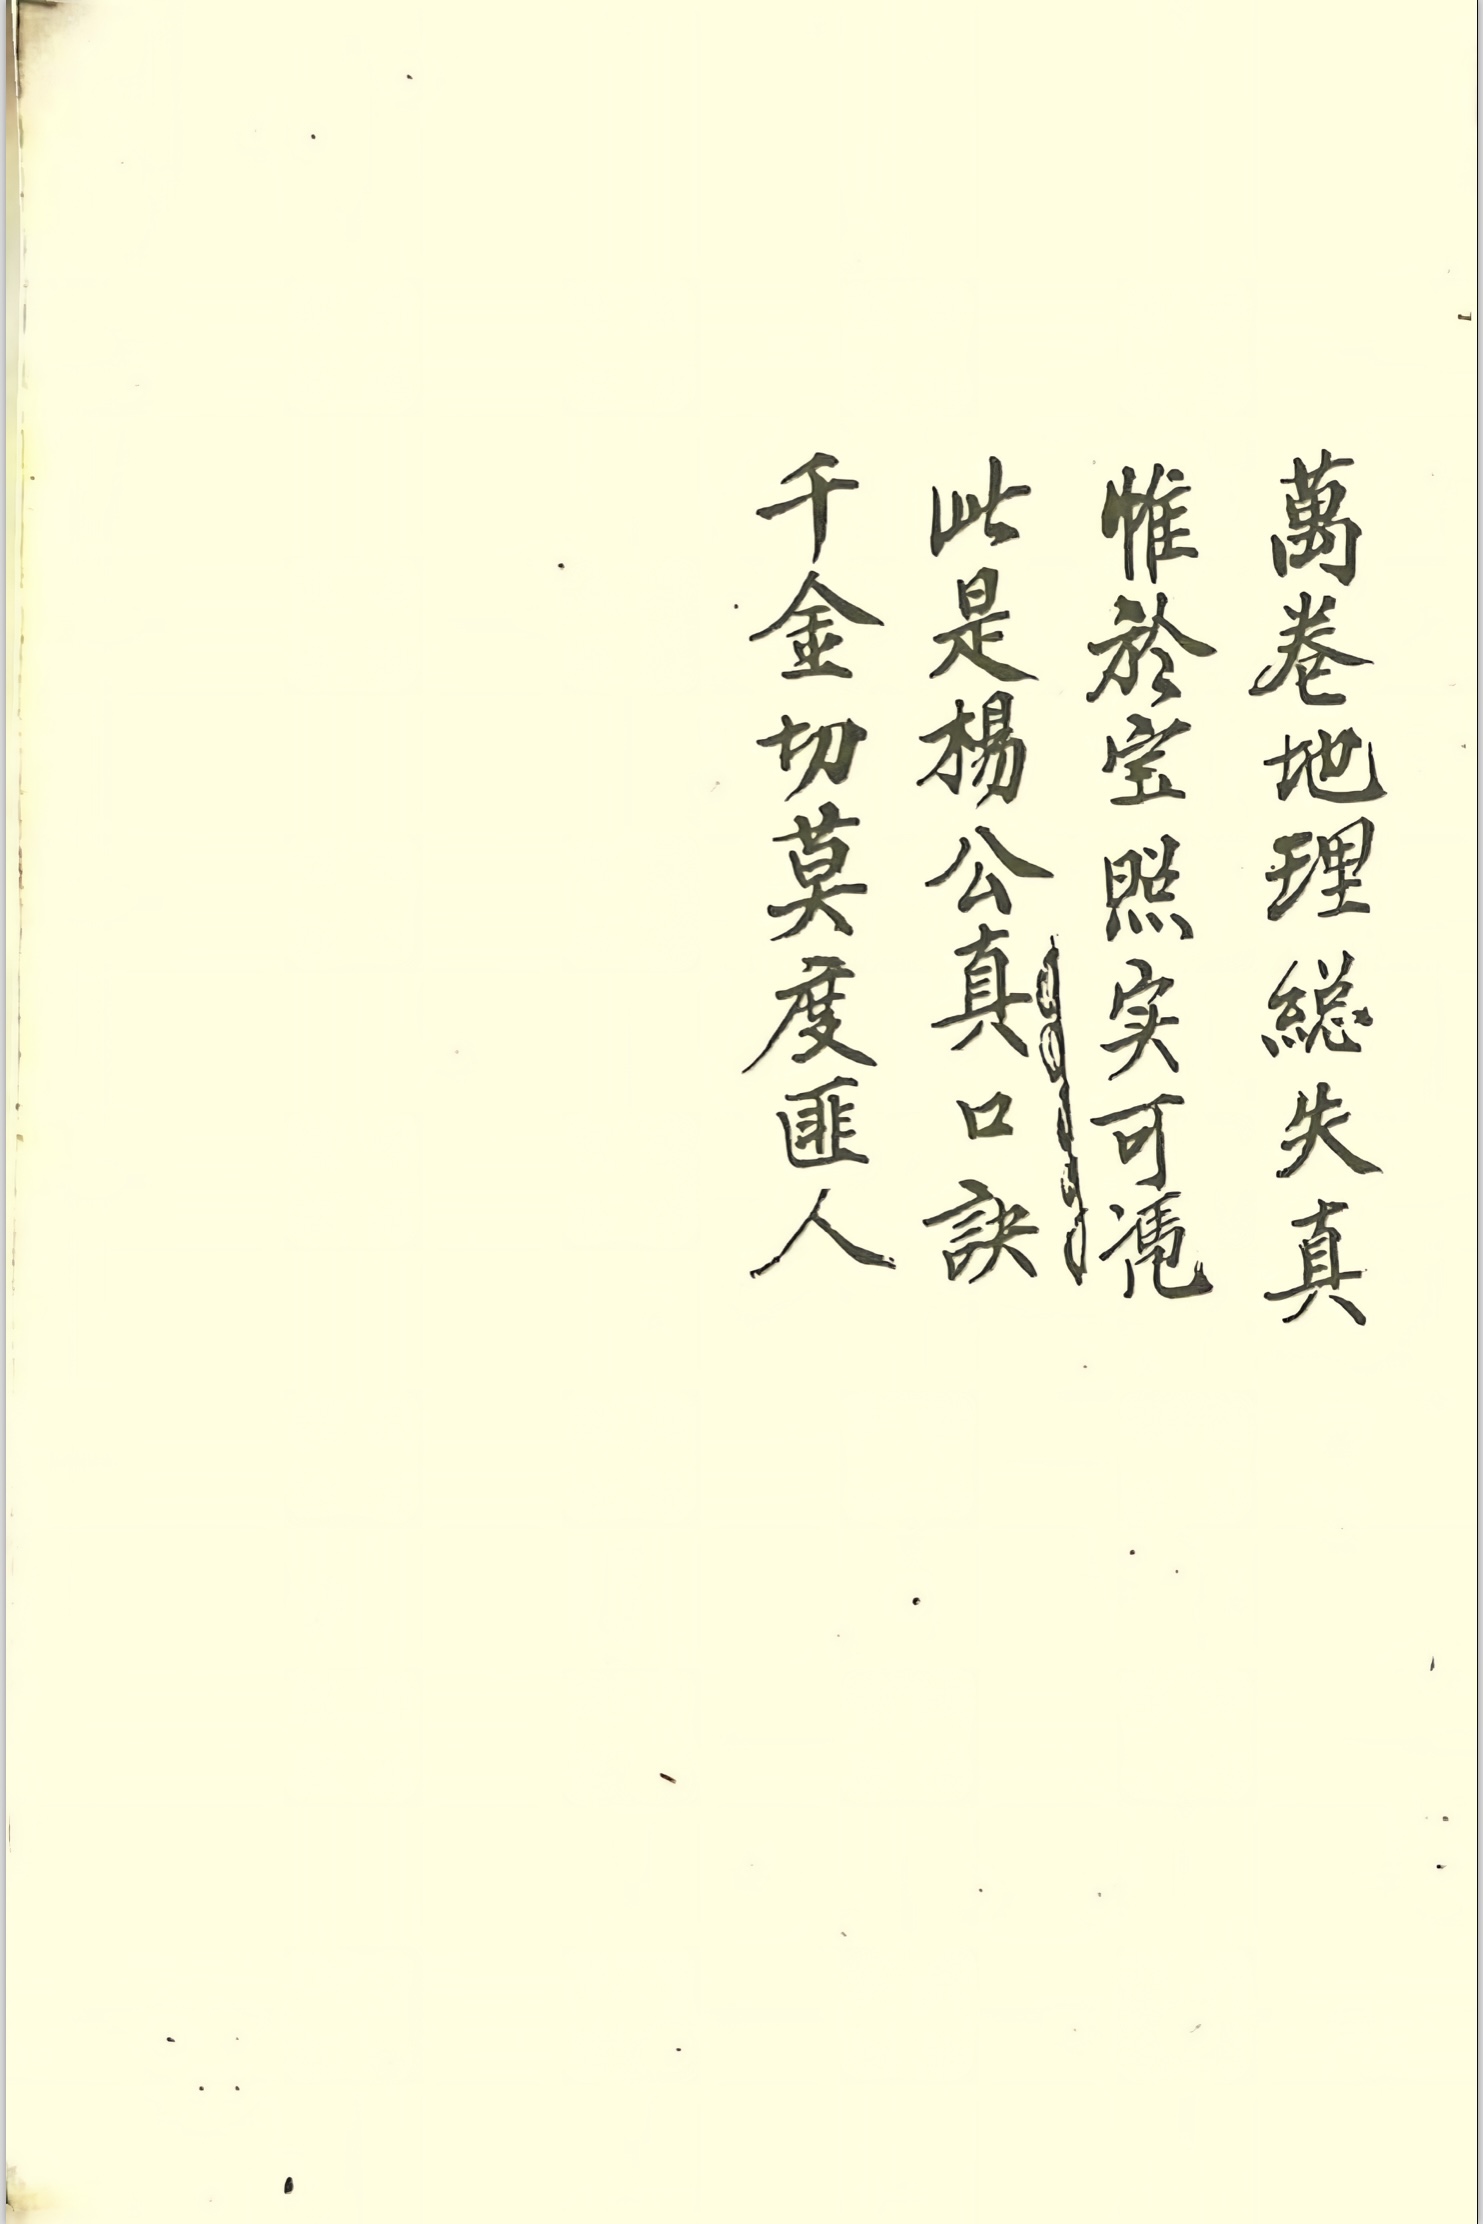 萬卷地理総失真
惟於宝照实可凴
此是楊公真口訣
千金切莫度匪人